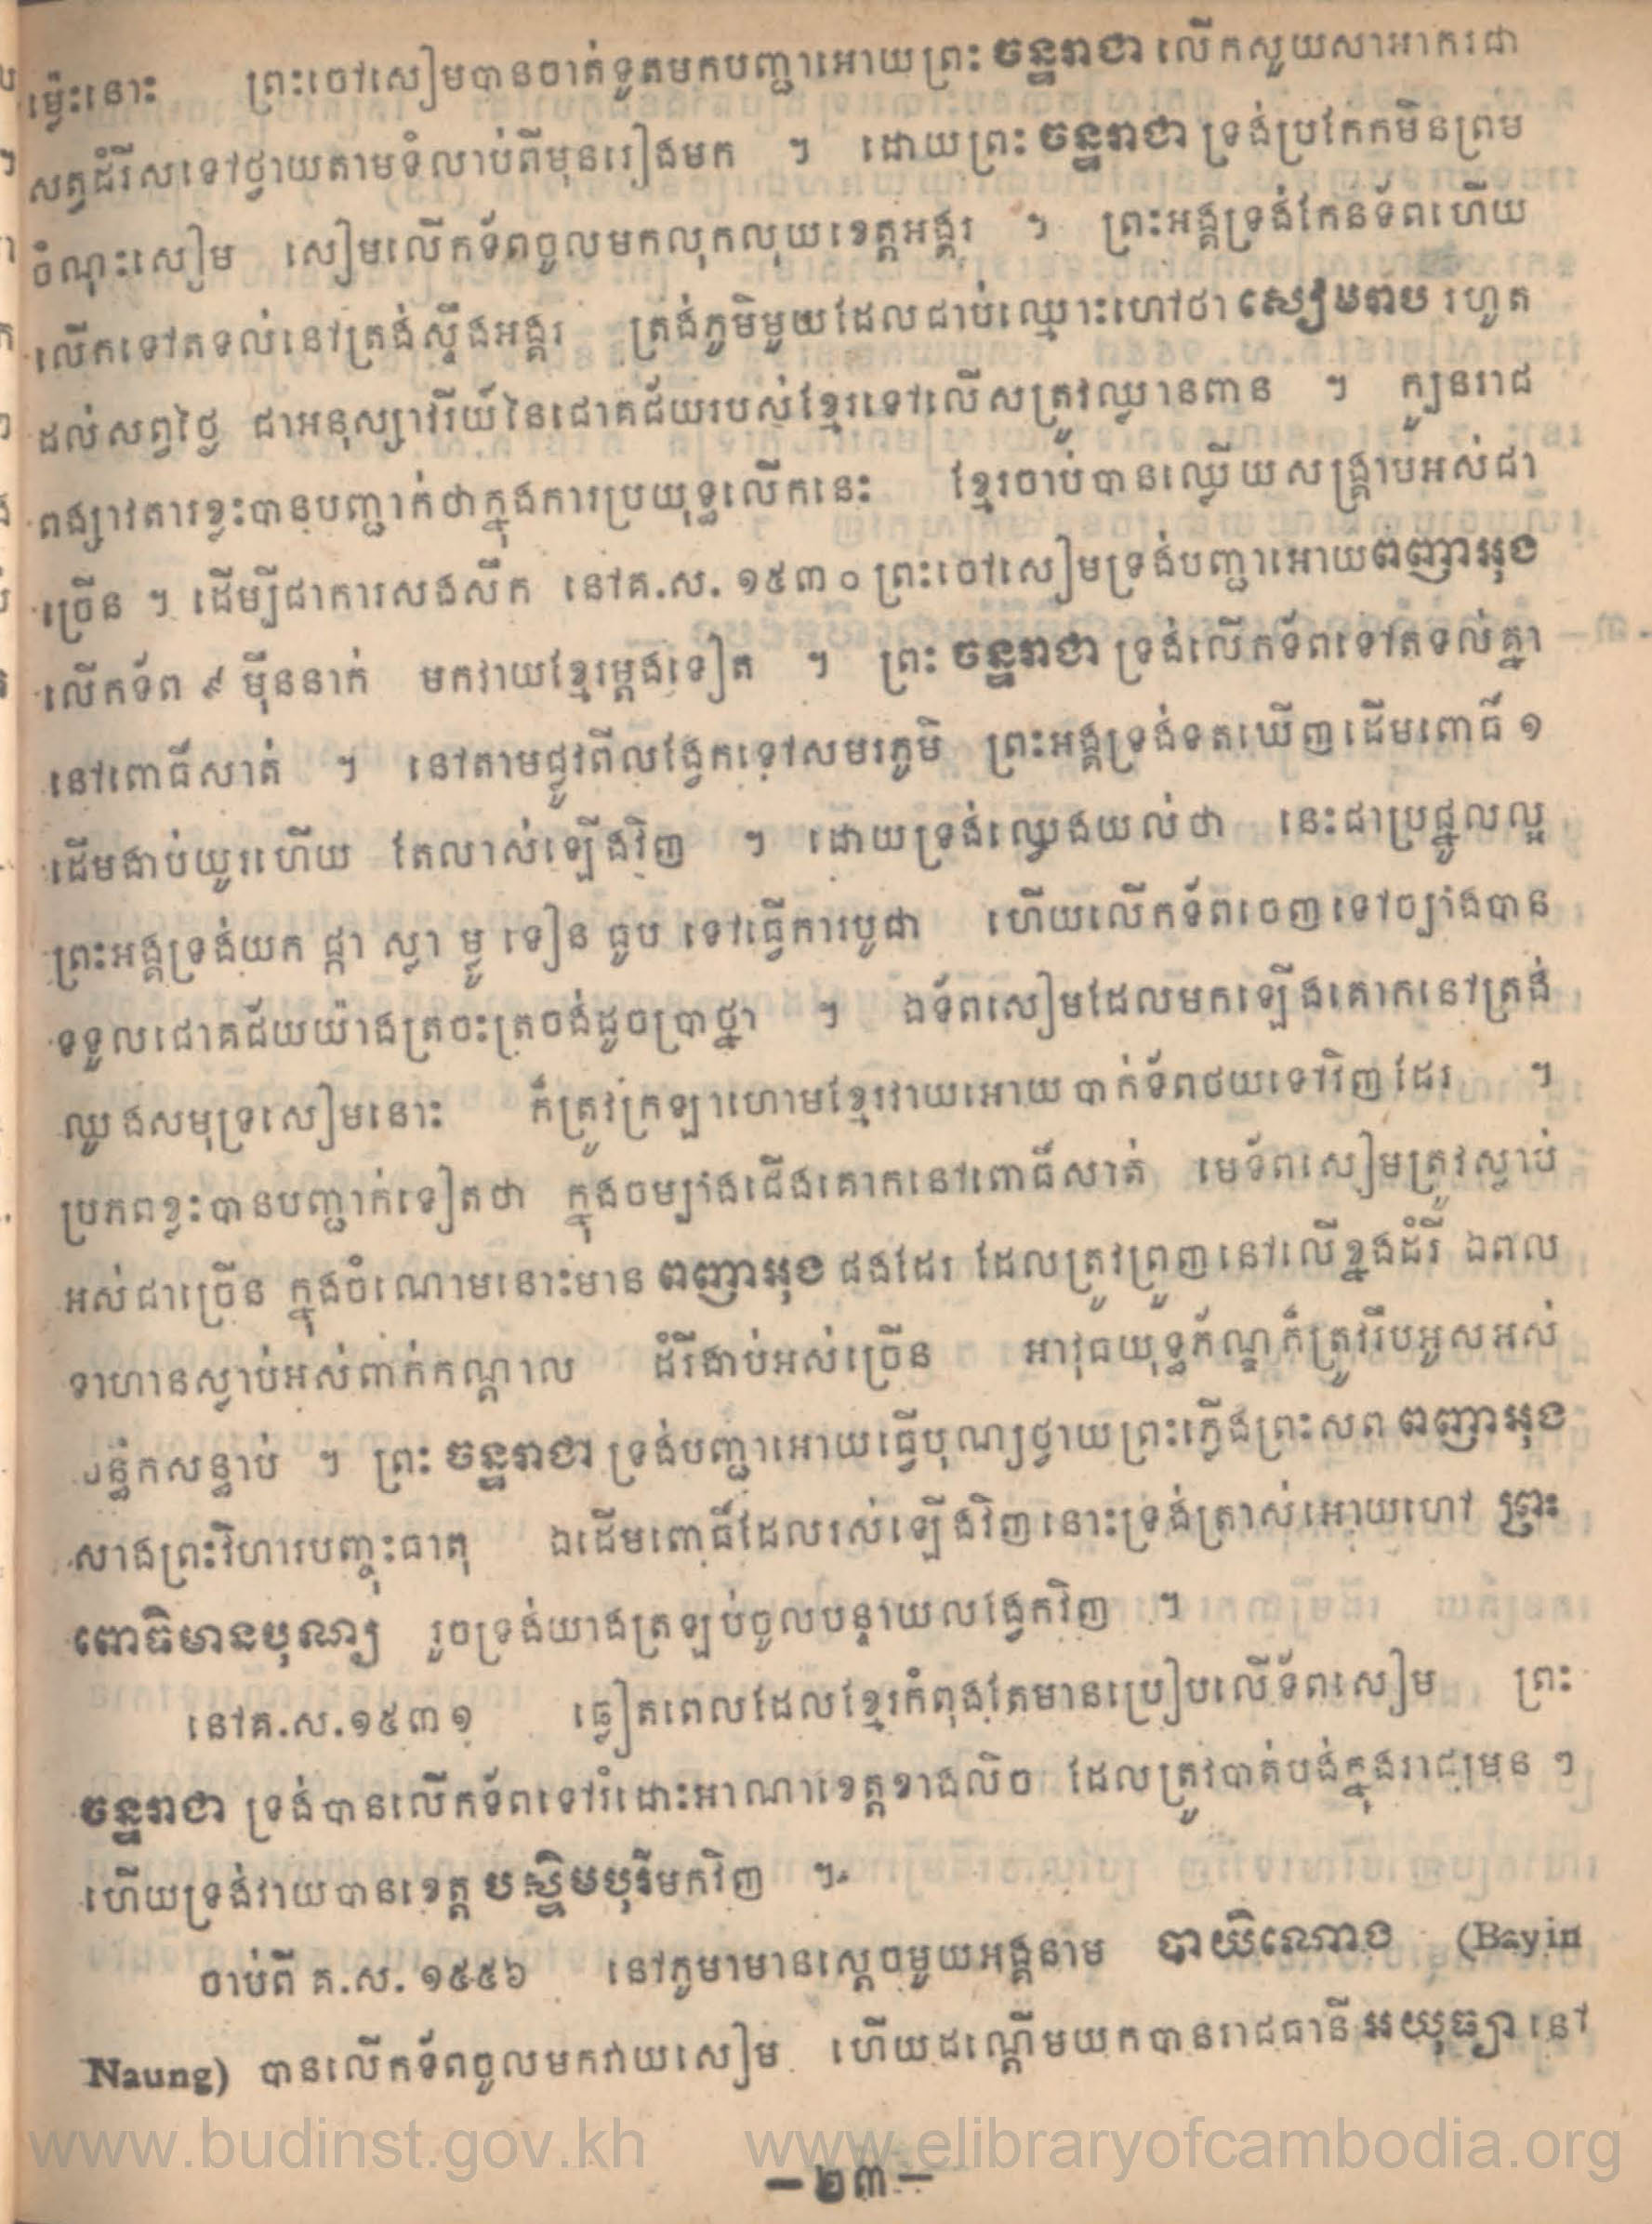 ម្ល៉េះនោះ ព្រះចៅសៀមបានចាត់ទូតមកបញ្ជាអោយព្រះ ចន្ទរាជា លើកសួយសាអាករជា
សត្វដំរីសទៅថ្វាយតាមទំលាប់ពីមុនរៀងមក ។ ដោយព្រះ ចន្ទរាជា ទ្រង់ប្រកែកមិនព្រម
ចំណុះសៀម សៀមលើកទ័ពចូលមកលុកលុយខេត្តអង្គរ ។ ព្រះអង្គទ្រង់កែនទ័ពហើយ
លើកទៅតទល់នៅត្រង់ស្ទឹងអង្គរ ត្រង់ភូមិមួយដែលជាប់ឈ្មោះហៅថា សៀមរាប រហូត
ដល់សព្វថ្ងៃ ជាអនុស្សាវរីយ៍នៃជោគជ័យរបស់ខ្មែរទៅលើសត្រូវឈ្លានពាន ។ ក្បួនរាជ
ពង្សាវតារខ្លះបានបញ្ជាក់ថាក្នុងការប្រយុទ្ធលើកនេះ ខ្មែរចាប់បានឈ្លើយសង្គ្រាមអស់ជា
ច្រើន ។ ដើម្បីជាការសងសឹក នៅគ.ស. ១៥៣០ ព្រះចៅសៀមទ្រង់បញ្ជាអោយពញាអុង
លើកទ័ព ៩ ម៉ឺននាក់ មកវាយខ្មែរម្តងទៀត ។ ព្រះ ចន្ទរាជា ទ្រង់លើកទ័ពទៅតទល់គ្នា
នៅពោធិ៍សាត់ ។ នៅតាមផ្លូវពីលង្វែកទៅសមរភូមិ ព្រះអង្គទ្រង់ទតឃើញដើមពោធិ៍ ១
ដើមងាប់យូរហើយ តែលាស់ឡើងវិញ ។ ដោយទ្រង់ឈ្វេងយល់ថា នេះជាប្រផ្នូលល្អ
ព្រះអង្គទ្រង់យក ផ្កា ស្លា ម្លូ ទៀន ធូប ទៅធ្វើការបូជា ហើយលើកទ័ពចេញទៅច្បាំងបាន
ទទួលជោគជ័យយ៉ាងត្រចះត្រចង់ដូចប្រាថ្នា ។ ឯទ័ពសៀមដែលមកឡើងគោកនៅត្រង់
ឈូងសមុទ្រសៀមនោះ ក៏ត្រូវក្រឡាហោមខ្មែរវាយអោយបាក់ទ័ពថយទៅវិញដែរ ។
ប្រភពខ្លះបានបញ្ជាក់ទៀតថា ក្នុងចម្បាំងជើងគោកនៅពោធិ៍សាត់ មេទ័ពសៀមត្រូវស្លាប់
អស់ជាច្រើន ក្នុងចំណោមនោះមាន ពញាអុង ផងដែរ ដែលត្រូវព្រួញនៅលើខ្នងដំរី ឯពល
ទាហានស្លាប់អស់ពាក់កណ្តាល ដំរីងាប់អស់ច្រើន អាវុធយុទ្ធភ័ណ្ឌក៏ត្រូវរឹបអូសអស់
សន្ធាប់ ។ ព្រះ ចន្ទរាជា ទ្រង់បញ្ជាអោយធ្វើបុណ្យថ្វាយព្រះភ្លើងព្រះសព ពញាអុង
សាងព្រះវិហារបញ្ចុះធាតុ ឯដើមពោធិ៍ដែលរស់ឡើងវិញនោះទ្រង់ត្រាស់អោយហៅ ព្រះ
ពោធិមានបុណ្យ រួចទ្រង់យាងត្រឡប់ចូលបន្ទាយលង្វែកវិញ ។
នៅគ.ស.១៥៣១ ឆ្លៀតពេលដែលខ្មែរកំពុងតែមានប្រៀបលើទ័ពសៀម ព្រះ
ចន្ទរាជា ទ្រង់បានលើកទ័ពទៅរំដោះអាណាខេត្តខាងលិច ដែលត្រូវបាត់បង់ក្នុងរាជ្យមុន ៗ
ហើយទ្រង់វាយបានខេត្ត បស្ចិមបុរីមកវិញ ។
ចាប់ពី គ.ស. ១៥៥៦ នៅភូមាមានស្តេចមួយអង្គនាម បាយិណោង (Bayin
Naung) បានលើកទ័ពចូលមកវាយសៀម ហើយដណ្តើមយកបានរាជធានី អយុធ្យា នៅ
www.budinst.gov.kh www.elibraryofcambodia.org
—២៣—